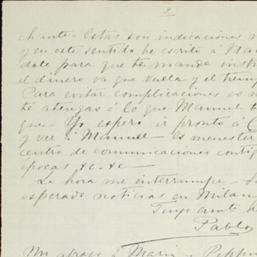 2
chante. Estas son indicaciones
y en este sentido he escrito á Man
dote para que te mande inst
el dinero va que vuela y el tiemp
Para evitar complicaciones es
te atengas á lo que Manuel t
que. Yo espero ir pronto á C
y ver á Manuel. Es menester
centro de comunicaciones conti
épocas &c. &c.
La hora me interrumpe.
esperado noticias en Milan
Tengo ante
Pablo
Un abrazo á Maria y Peppin